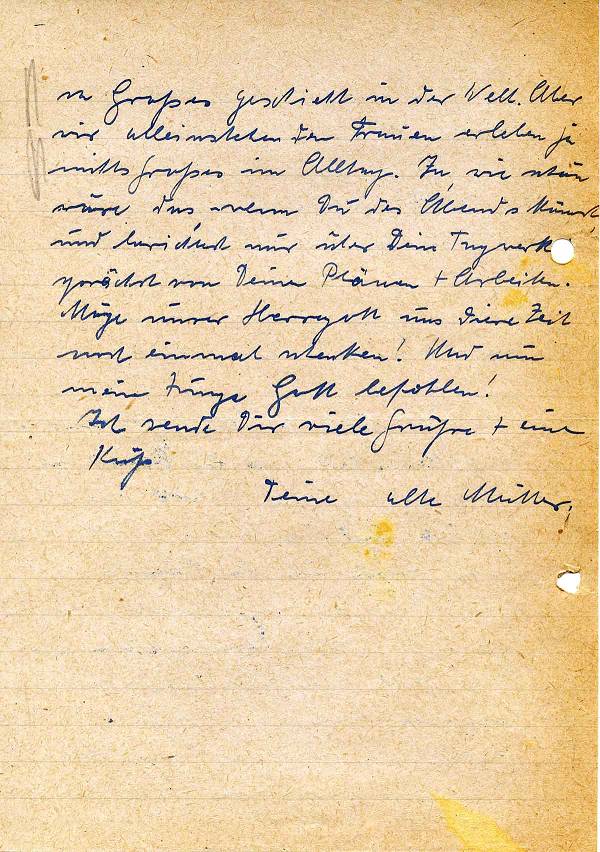 so Großes geschieht in der Welt. Aber
wir alleinstehenden Frauen erleben ja
nichts Großes im Alltag. Ja wie schön
wäre das wenn Du des Abends kämst
und berichtest mir über Dein Tagwerk
von Deinen Plänen + Arbeiten.
Möge unser Herrgott uns diese Zeit
noch einmal schenken! Und nun
mein Junge Gott befohlen!
Ich sende Dir viele Grüße + einen
Kuß
Deine alte Mutter.